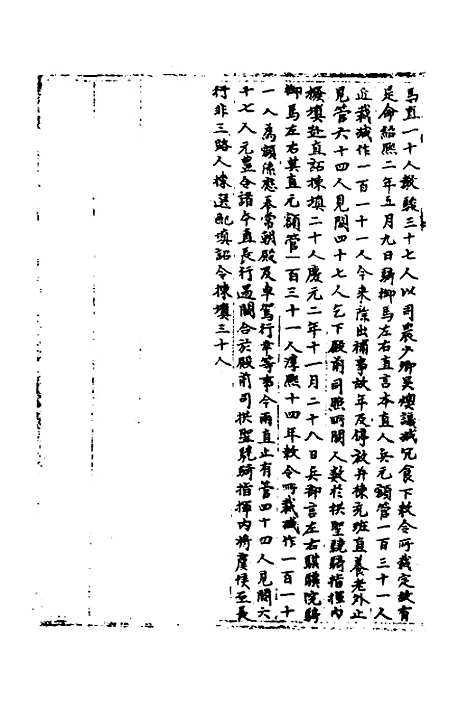 馬直一十人教駿三十七人以司農少卿吳燠議減冗食下敕令所裁定故有
是命紹熙二年五月九日騎御馬左右直言本直人兵元額管一百三十一人
近裁減作一百一十一人今來除出補事故年及停放并揀充班直養老外止
見管六十四人見闕四十七人乞下殿前司照所闕人數於拱聖驍騎指揮內
撥填赴直詔揀填二十人慶元二年十一月二十八日兵部言左右騏驥院騎
御馬左右萁直元額管一百三十一人淳熙十四年敕令所裁減作一百一十
一人為額係應奉常朝殿及車駕行幸等事今兩直止有管四十四人見闕六
十七人元豊令諸午直長行遇闕合於殿前司拱聖驍騎指揮內將虞候至長
行非三路人揀選配填詔令揀填三十人